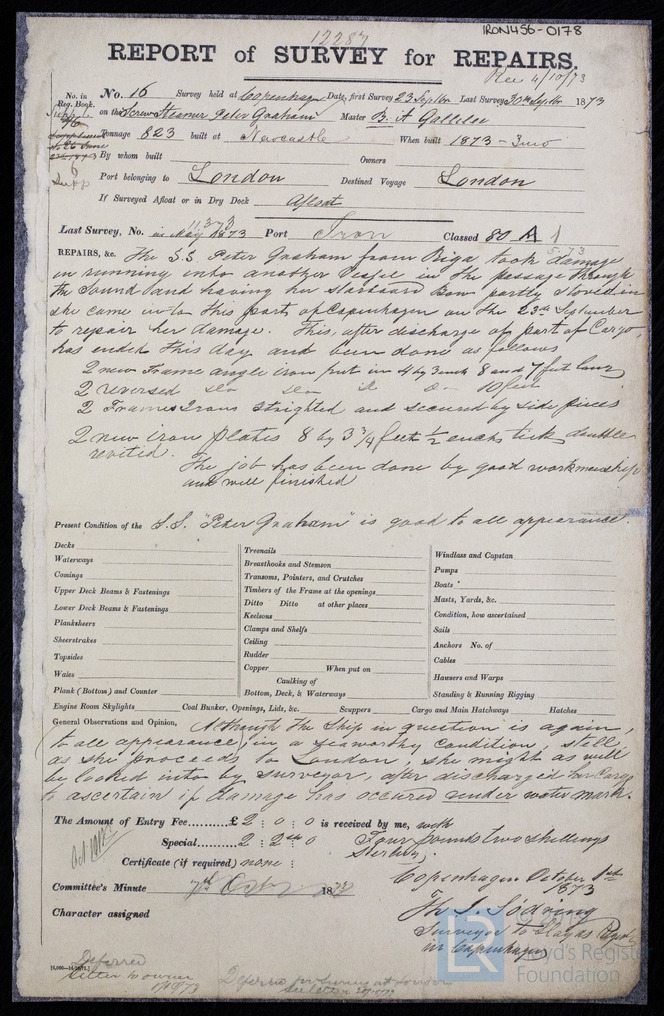 IRON456-0178
12287
REPORT of SURVEY for REPAIRS.
Rec 4/10/73
No. in Reg. Book.
No. 16 Survey held at Copenhagen Date, first Survey 23 Septbr Last Survey 30th Septbr 1873
on the Screw Steamer Peter Graham Master B. A
Tonnage 823 built at Newcastle When built 1873 -
By whom built Owners
Port belonging to London Destined Voyage London
If Surveyed Afloat or in Dry Dock Afloat
11373
Last Survey, No. in May 1873 Port Iron Classed 80 A 1
5.73
REPAIRS, &c. The S.S. Peter Graham from Riga took damage
in running into another Vessel in the passage through
the Sound and having her starboard Bow partly stoved in
she came into this port of Copenhagen on the 23rd September
to repair her damage. This, after discharge of part of Cargo,
has ended this day and been done as follows
2 new Frame angle iron put in 4 by 3 8 and 7 feet long
2 reversed do do 10 feet
2 Frames Irons strighted and secured by side pieces
2 new iron plates 8 by 3 3/4 feet 1/2 tick double
revited.
The job has been done by good workmanship
and well finished
Present Condition of the S.S. "Peter Graham" is good to all appearance.
Decks Treenails Windlass and Capstan
Waterways Breasthooks and Stemson Pumps
Comings Transoms, Pointers, and Crutches Boats
Upper Deck Beams & Fastenings Timbers of the Frame at the openings Masts, Yards, &c.
Lower Deck Beams & Fastenings Ditto Ditto at other places Condition, how ascertained
Planksheers Keelsons Sails
Sheerstrakes Clamps and Shelfs Anchors No. of
Topsides Ceiling Cables
Wales Rudder Hawsers and Warps
Plank (Bottom) and Counter Copper When put on Standing & Running Rigging
Caulking of Bottom, Deck, & Waterways
Engine Room Skylights Coal Bunker, Openings, Lids, &c. Scuppers Cargo and Main Hatchways Hatches
General Observations and Opinion, Although the Ship in question is again,
to all appearance, in a seaworthy condition, still,
as she proceeds to London, she might as well
be looked into by Surveyor, after discharged her Cargo
to ascertain if damage has occured under water mark.
The Amount of Entry Fee......... £ 2 : 0 : 0 is received by me, with
Special...... 2 : 2 : 0 Four pounds two shillings
Sterling.
Certificate (if required) none :
Copenhagen October 1st
1873
Committee's Minute 7th Octbr 1873
Th. S. Södring
Character assigned
Surveyor to Lloyds Regist
in Copenhagen
Deferred
Letter to owner
Deferred for survey at London
LR
Lloyd's Register
Foundation